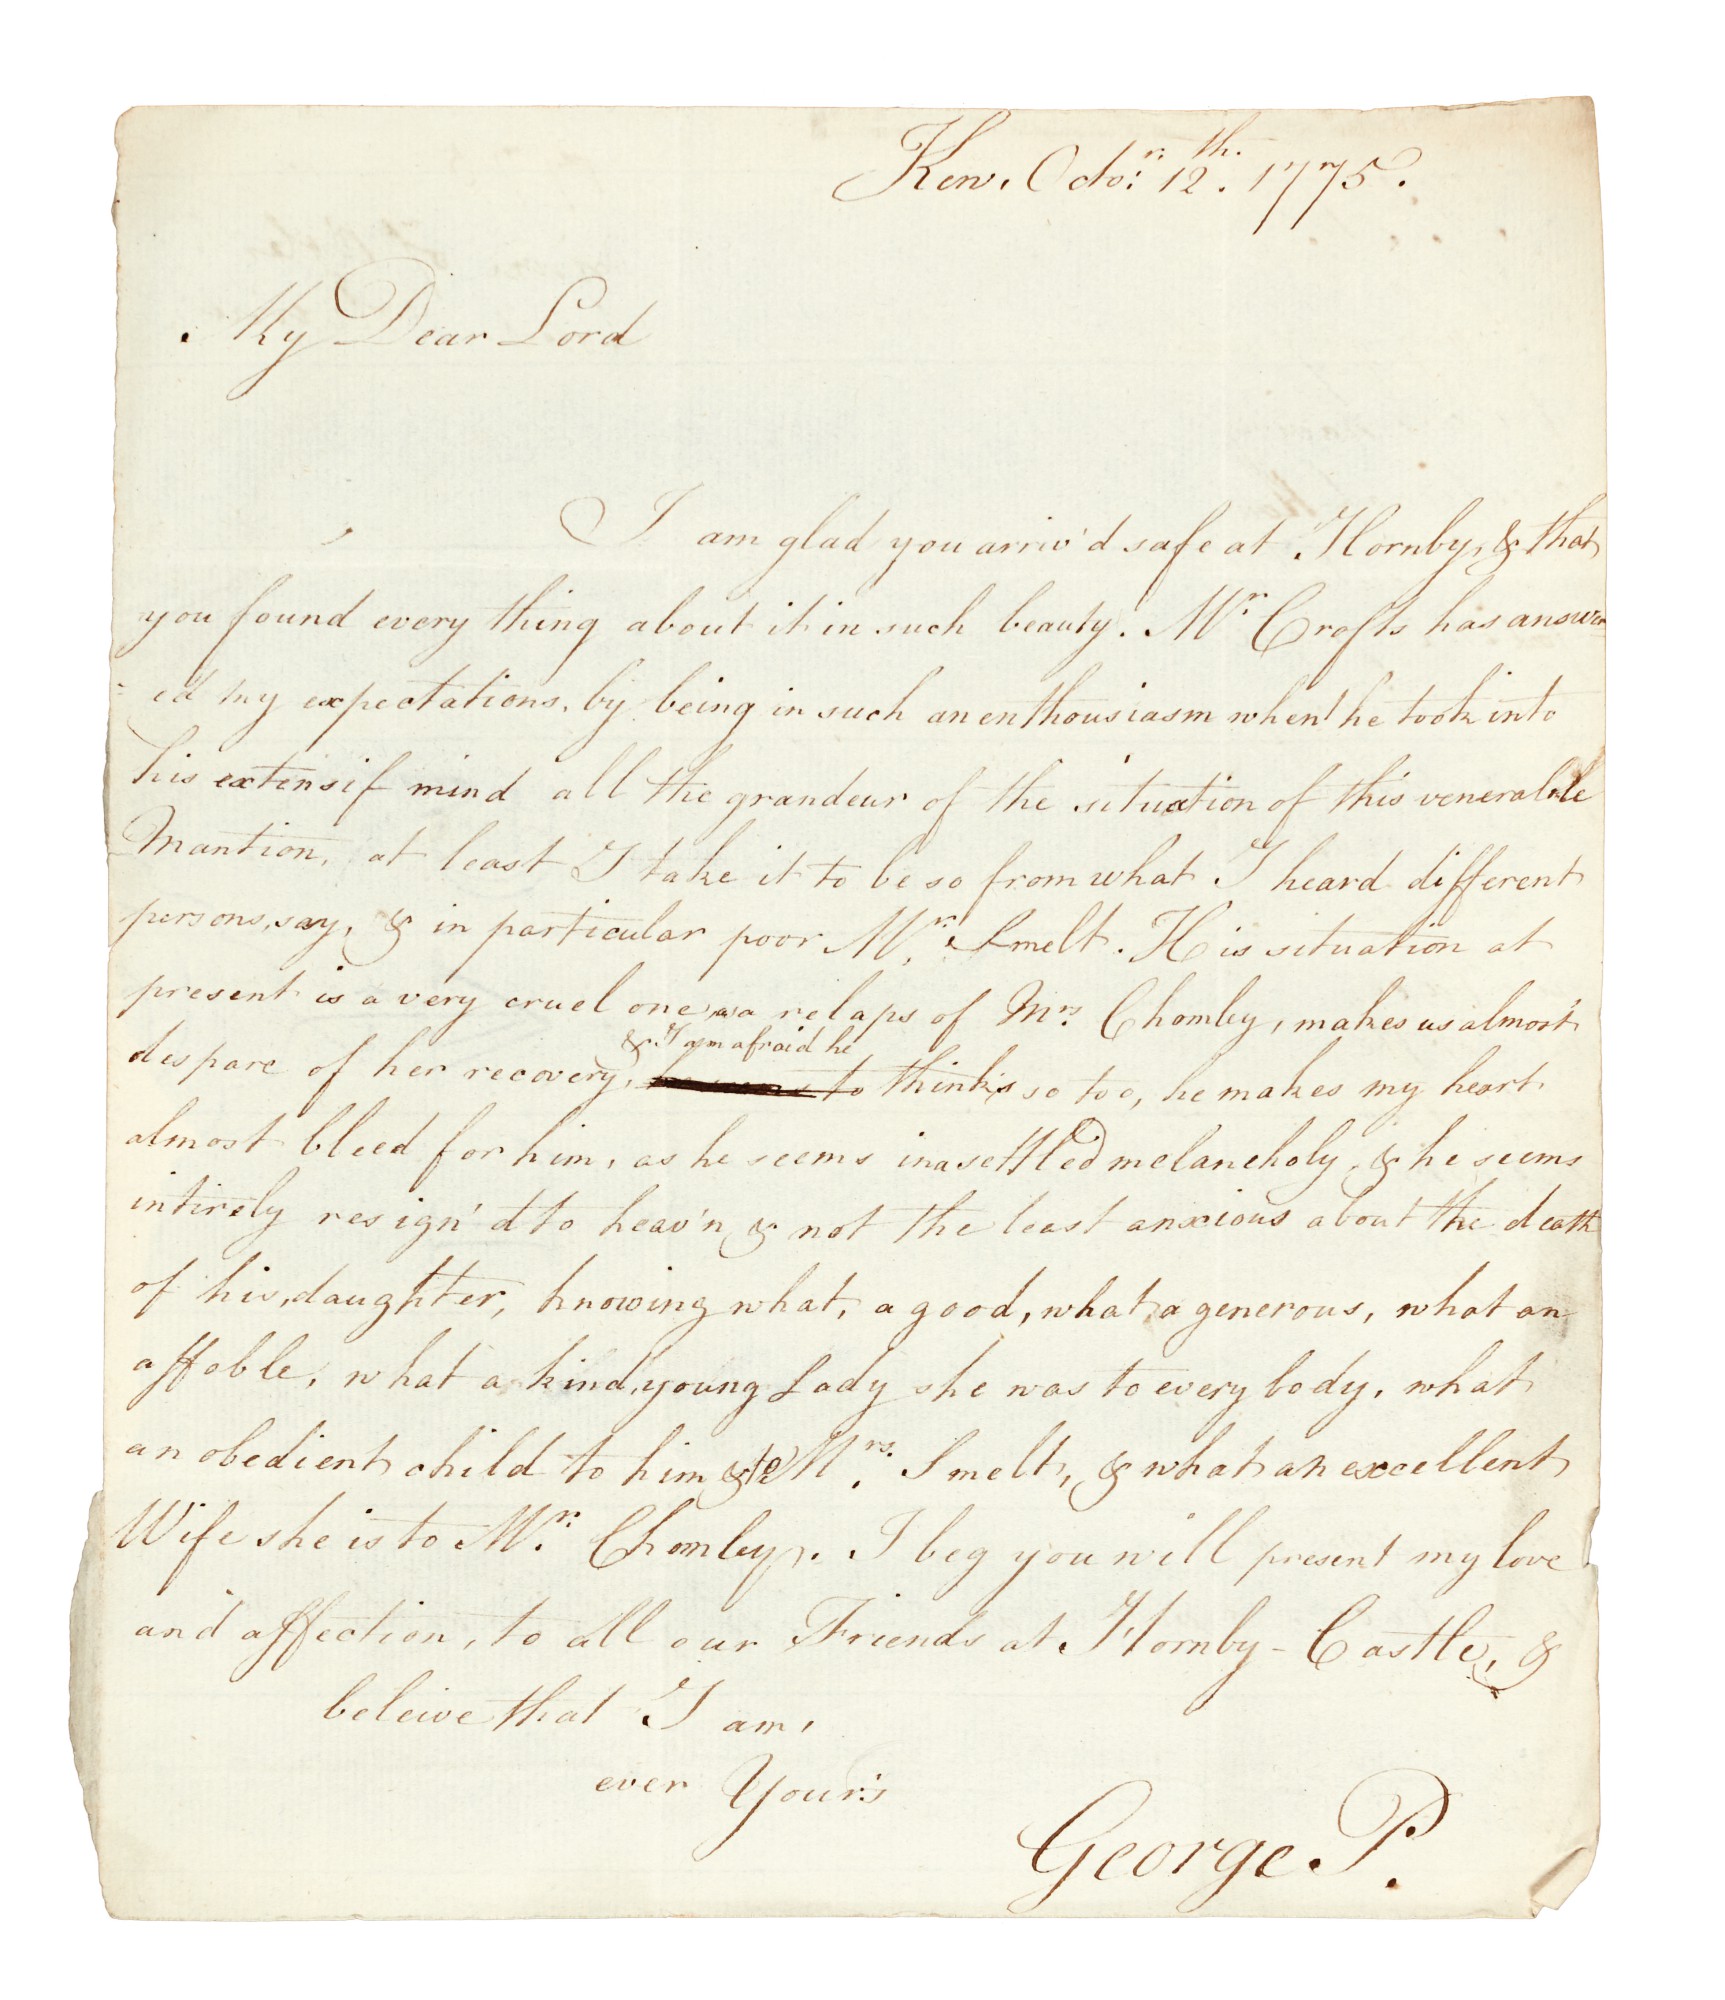 Kew. Octo:r. 12th. 1775.
My Dear Lord
I am glad you arriv'd safe at Hornby, & that
you found every thing about it in such beauty. Mr. Crofts has answer
=ed my expectations, by being in such an enthousiasm when he took into
his extensif mind all the grandeur of the situation of this venerable
Mantion, at least I take it to be so from what I heard different
persons, say, & in particular poor Mr. Smelt. His situation at
present is a very cruel one, as a relaps of Mrs. Chomley, makes us almost
& I am afraid he
despare of her recovery, to thinks so too, he makes my heart
almost bleed for him, as he seems in a settled melancholy, & he seems
intirely resign'd to heav'n & not the least anxious about the death
of his, daughter, knowing what, a good, what a generous, what an
affoble, what a kind, young Lady she was to every body, what
an obedient child to him & to Mrs. Smelt, & what an excellent
Wife she is to Mr. Chomley. I beg you will present my love
and affection, to all our Friends at Hornby-Castle, &
beleive that I am,
ever Your's
George. P.